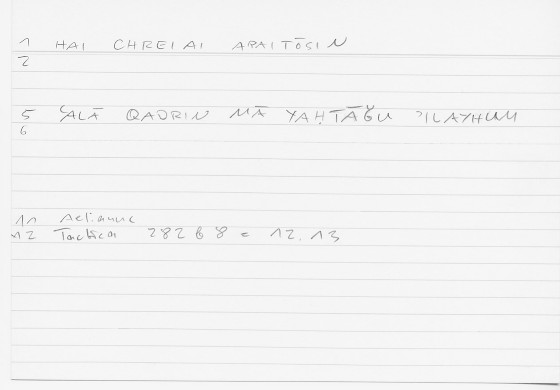 1 HAI CHREIAI APAITŌSIN
2
5 ʿALĀ QADRIN MĀ YAḤTĀǦU ʾILAYHUM
6
11 Aelianus
12 Tactica 282 b 8 = 12.13